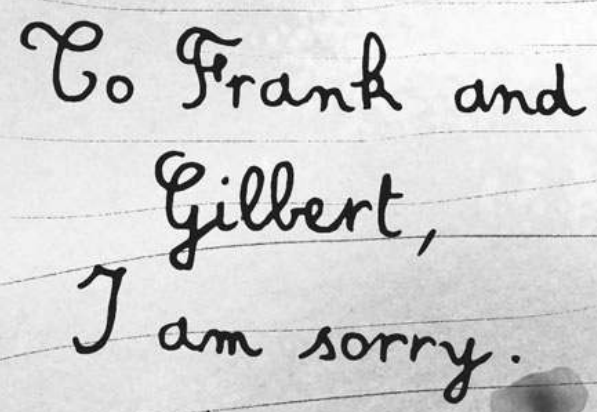 To Frank and
Gilbert,
I am sorry.